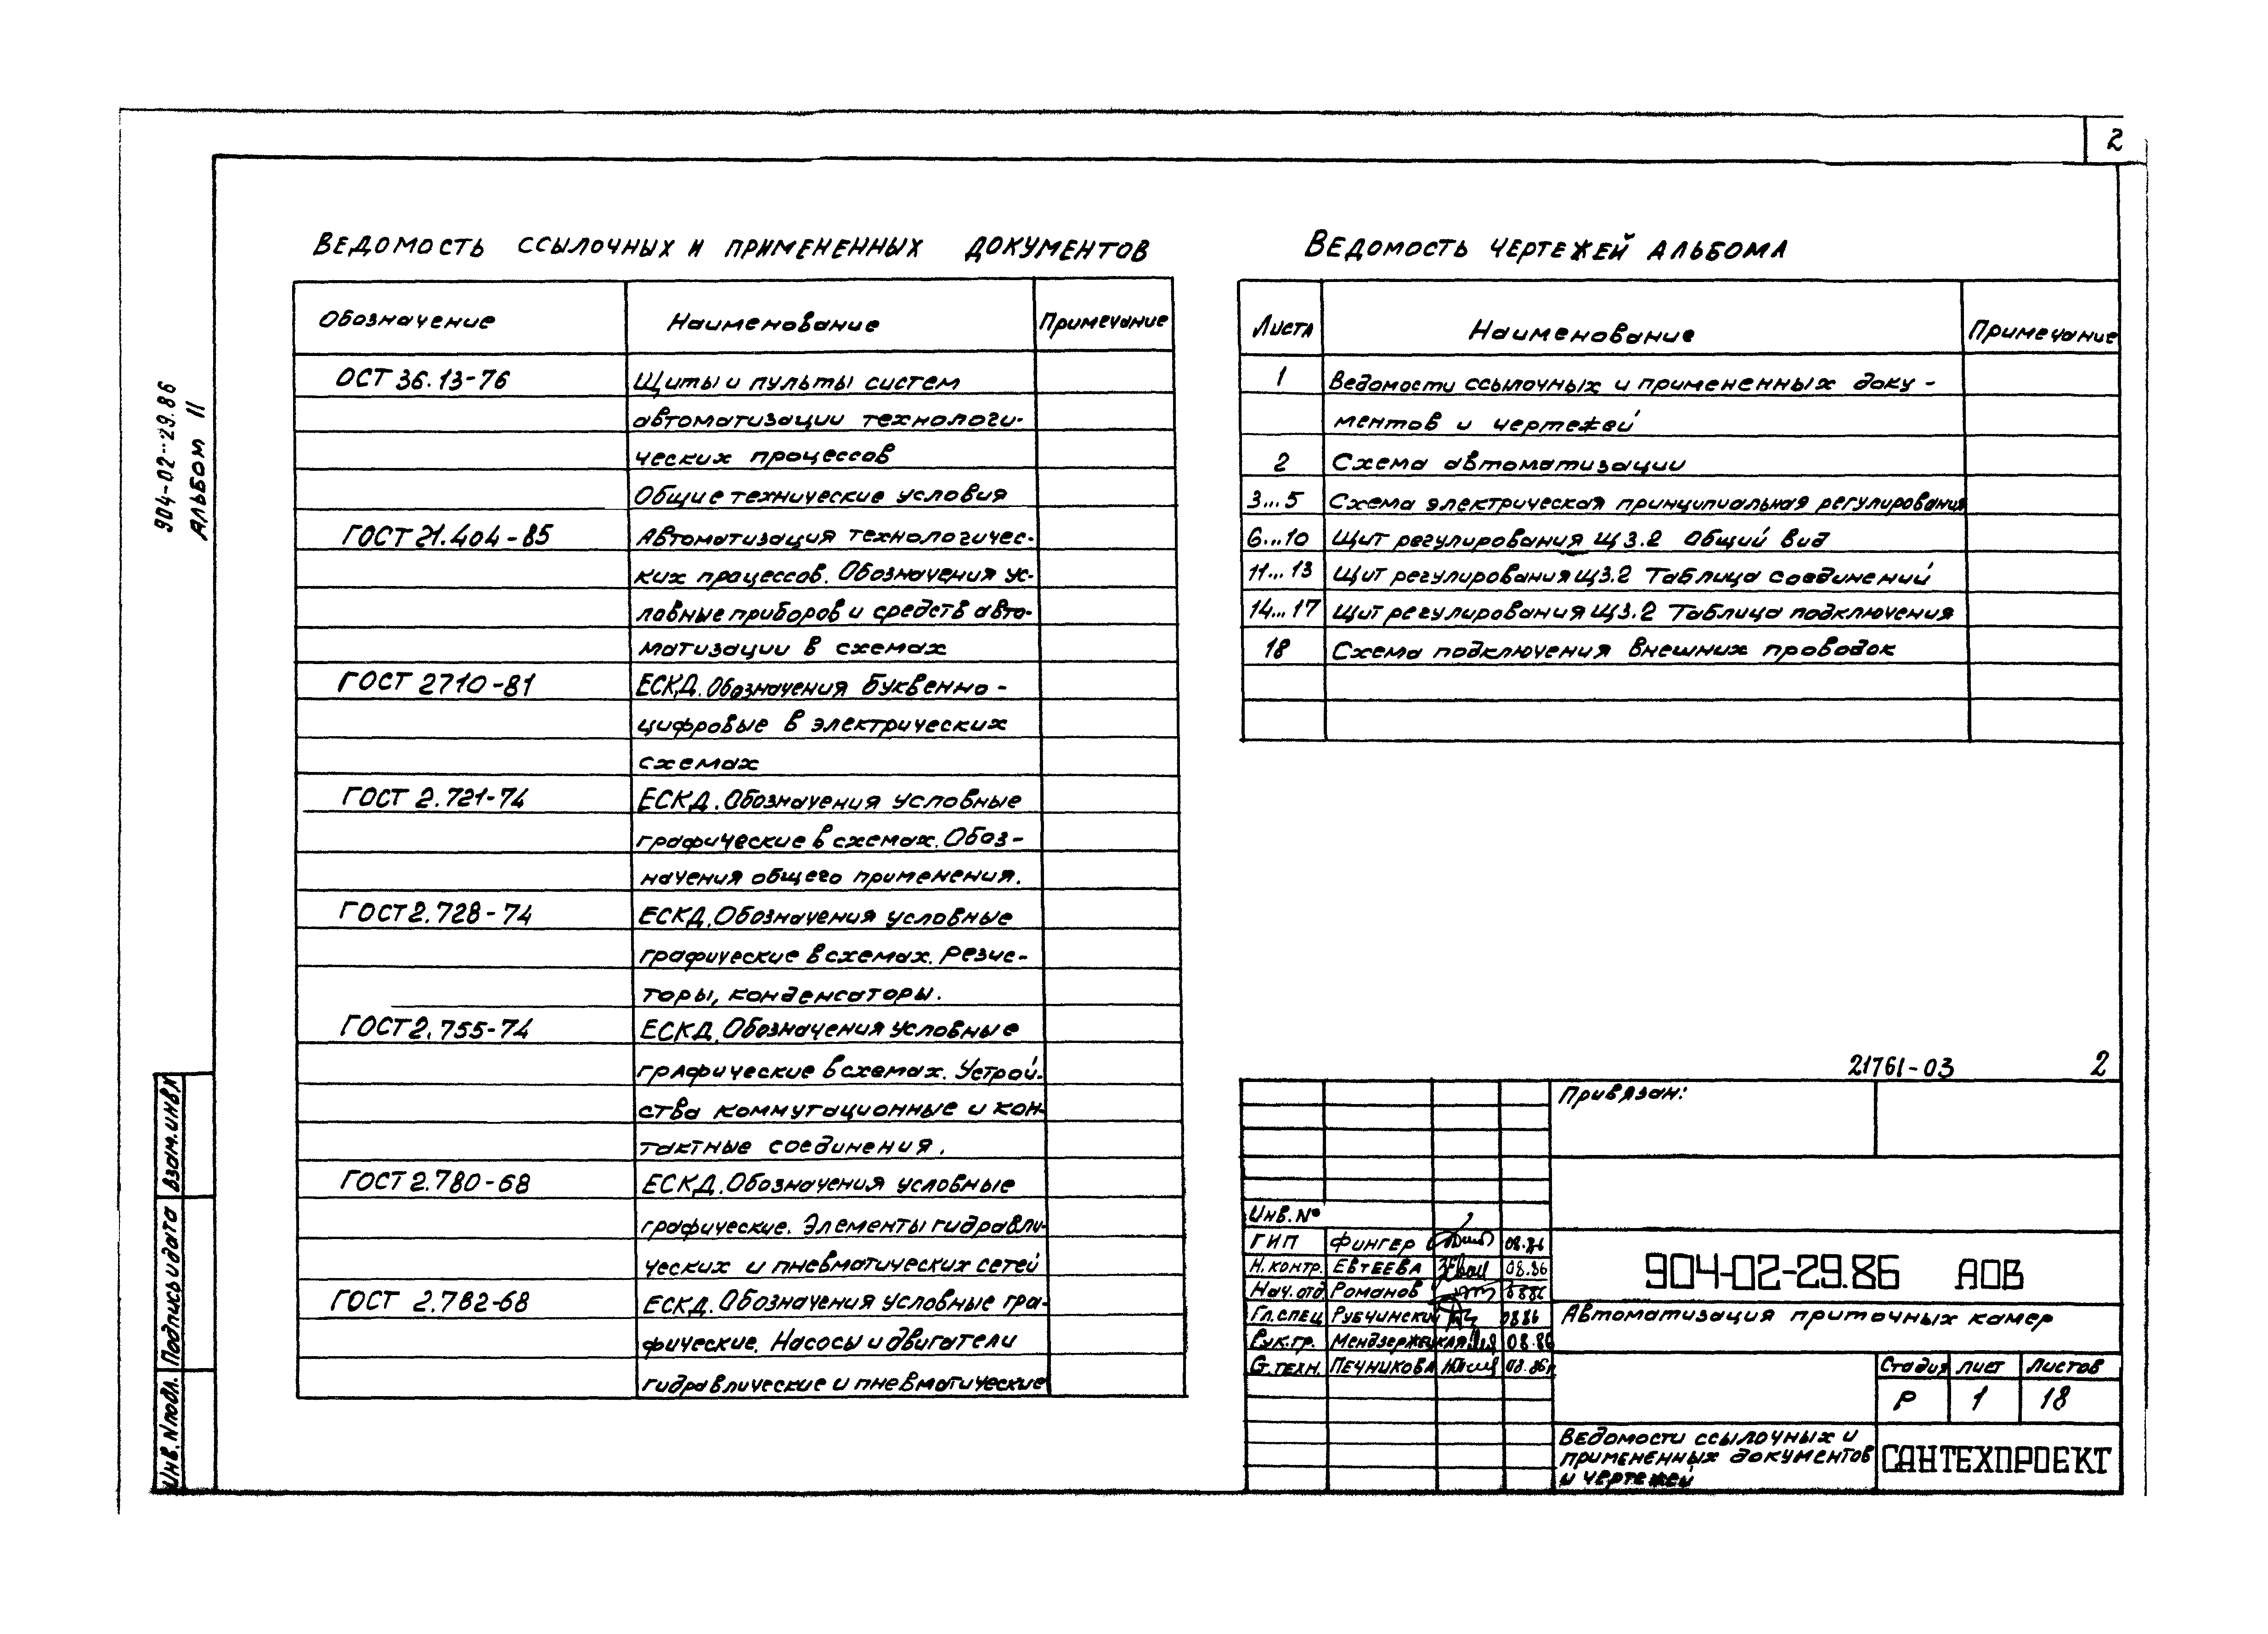 2
904-02-29.86
Альбом II
Ведомость ссылочных и примененных документов
Обозначение Наименование Примечание
ОСТ 36.13-76 Щиты и пульты систем
автоматизации технологи-
ческих процессов
Общие технические условия
ГОСТ 21.404-85 Автоматизация технологичес-
ких процессов. Обозначения ус-
ловные приборов и средств авто-
матизации в схемах
ГОСТ 2710-81 ЕСКД. Обозначения буквенно-
цифровые в электрических
схемах
ГОСТ 2.721-74 ЕСКД. Обозначения условные
графические в схемах. Обоз-
начения общего применения.
ГОСТ 2.728-74 ЕСКД. Обозначения условные
графические в схемах. Резис-
торы, конденсаторы.
ГОСТ 2.755-74 ЕСКД. Обозначения условные
графические в схемах. Устрой-
ства коммутационные и кон-
тактные соединения.
ГОСТ 2.780-68 ЕСКД. Обозначения условные
графические. Элементы гидравли-
ческих и пневматических сетей
ГОСТ 2.782-68 ЕСКД. Обозначения условные гра-
фические. Насосы и двигатели
гидравлические и пневматические
Ведомость чертежей альбома
Листа Наименование Примечание
1 Ведомости ссылочных и примененных доку-
ментов и чертежей
2 Схема автоматизации
3...5 Схема электрическая принципиальная регулирования
6...10 Щит регулирования Щ3.2 Общий вид
11...13 Щит регулирования Щ3.2 Таблица соединений
14...17 Щит регулирования Щ3.2 Таблица подключения
18 Схема подключения внешних проводок
21761-03 2
Привязан:
Инв. №
ГИП Фингер 08.86
Н. контр. Евтеева 08.86
Нач. отд Романов 0886
Гл. спец Рубчинский 0886
Рук. гр. Мендзержецкая 08.86
Ст. техн. Печникова 08.86г
904-02-29.86 АОВ
Автоматизация приточных камер
Стадия Лист Листов
Р 1 18
Ведомости ссылочных и
примененных документов
и чертежей
САНТЕХПРОЕКТ
Взам. инв. №
Подпись и дата
Инв. № подл.